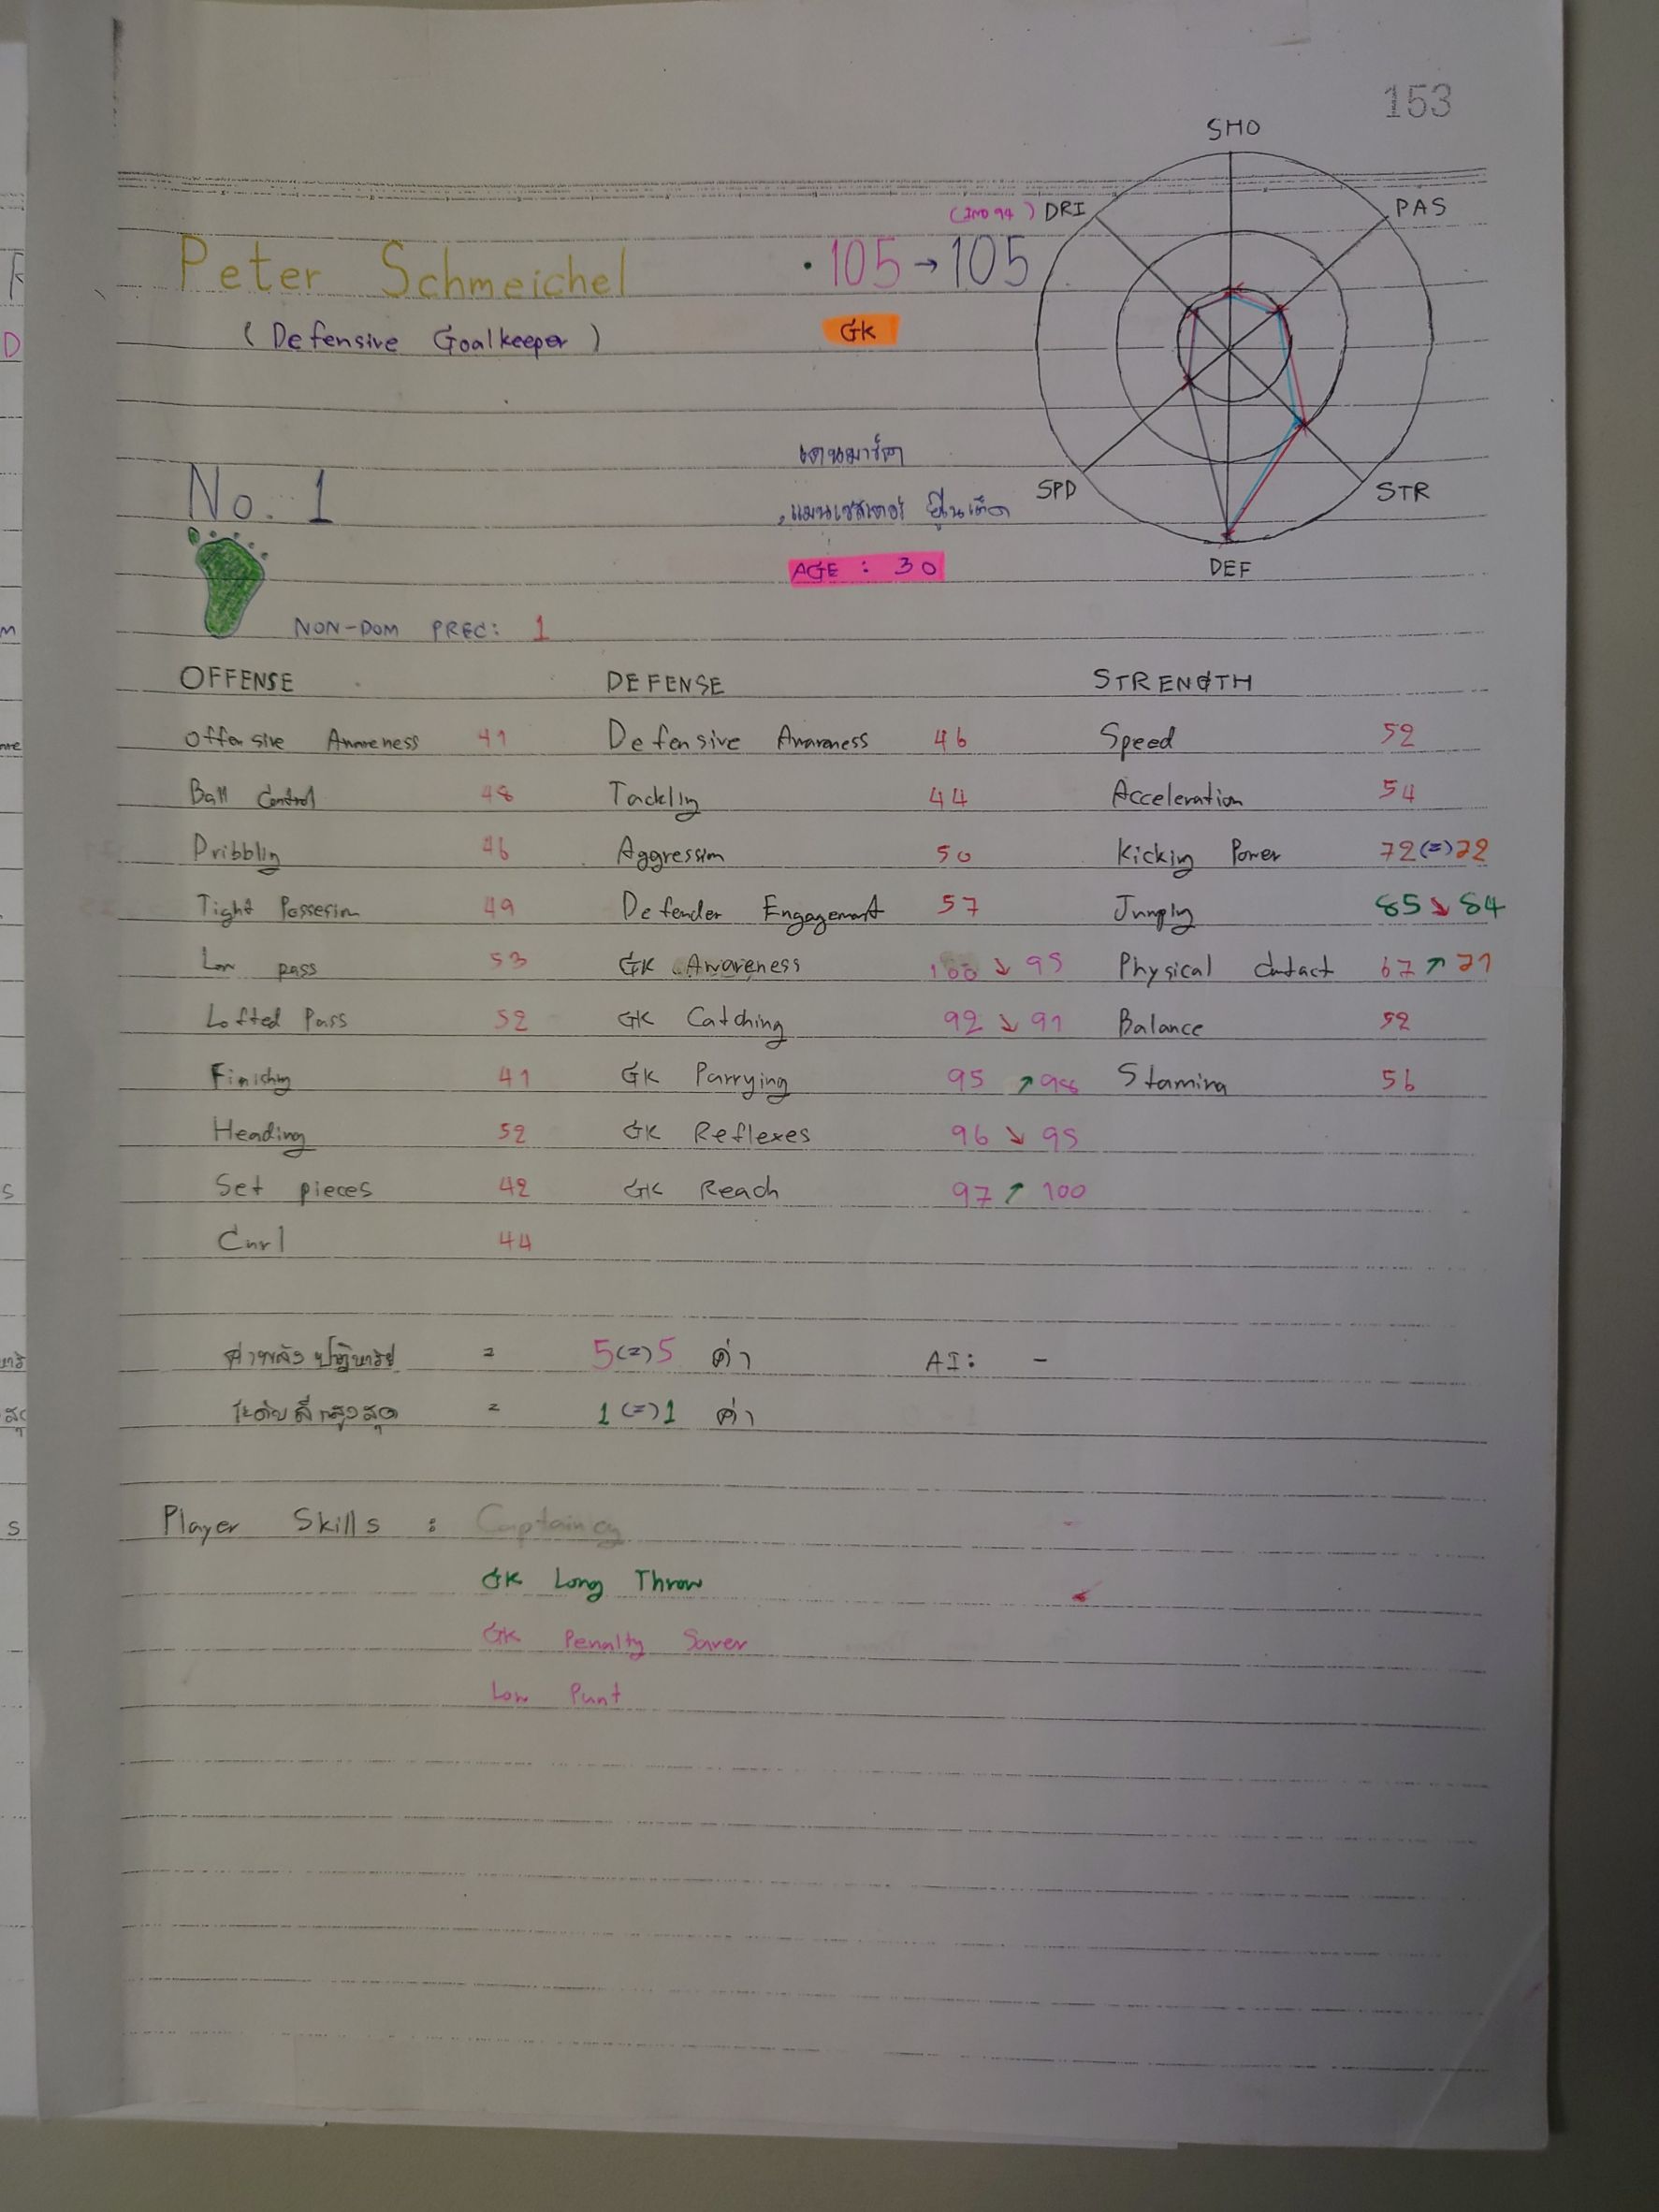 153
SHO
(IMO 94) DRI
PAS
Peter Schmeichel
· 105 → 105
(Defensive Goalkeeper)
GK
เดนมาร์ก
No. 1
SPD
STR
,แมนเชสเตอร์ ยูไนเต็ด
AGE : 30
DEF
NON-DOM PREC: 1
OFFENSE DEFENSE STRENGTH
Offensive Awareness 41 Defensive Awareness 46 Speed 52
Ball Control 48 Tackling 44 Acceleration 54
Dribbling 46 Aggression 50 Kicking Power 72(=)72
Tight Possesion 49 Defender Engagement 57 Jumping 85 ↘ 84
Low pass 53 GK Awareness 100 ↘ 95 Physical Contact 67 ↗ 71
Lofted Pass 52 GK Catching 92 ↘ 91 Balance 52
Finishing 41 GK Parrying 95 ↗ 98 Stamina 56
Heading 52 GK Reflexes 96 ↘ 95
Set pieces 42 GK Reach 97 ↗ 100
Curl 44
ค่าพลังปาฏิหาริย์ = 5(=)5 ค่า AI: -
ระดับสีสูงสุด = 1(=)1 ค่า
Player Skills : Captaincy
GK Long Throw
GK Penalty Saver
Low Punt